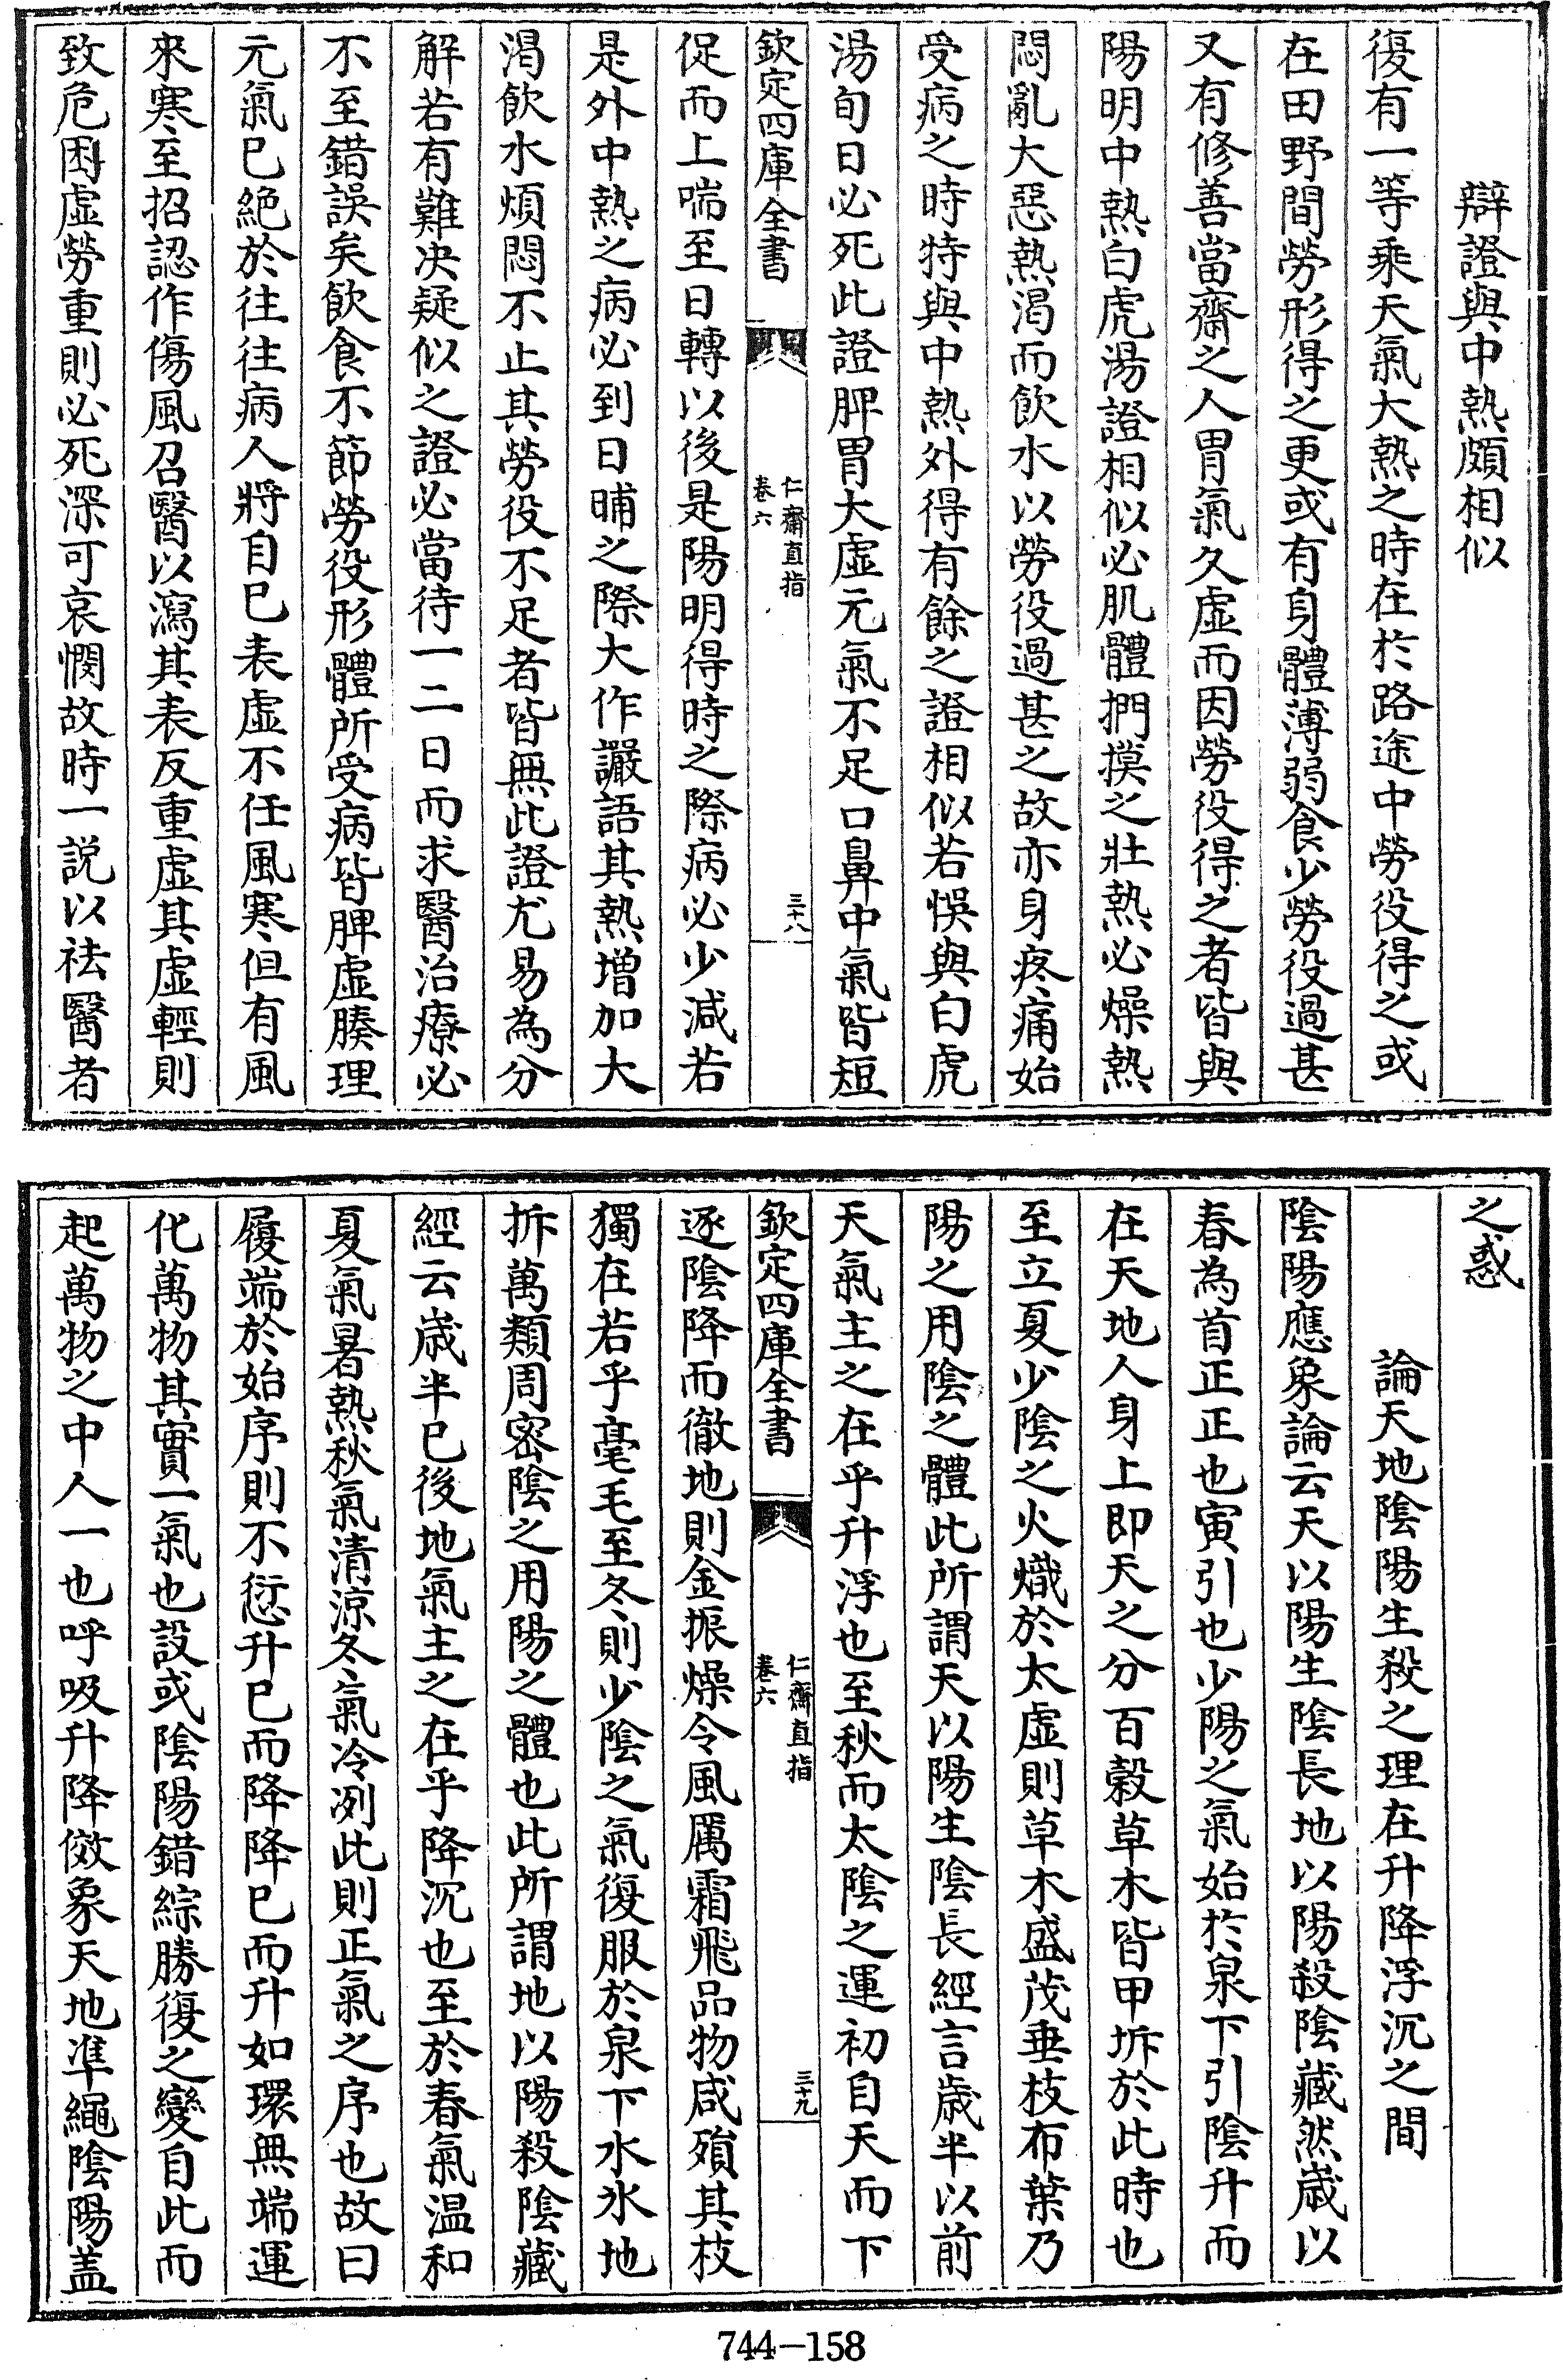 辯證與中熱頗相似
復有一等乘天氣大熱之時在於路途中勞役得之或
在田野間勞形得之更或有身體薄弱食少勞役過甚
又有修善當齋之人胃氣久虛而因勞役得之者皆與
陽明中熱白虎湯證相似必肌體捫摸之壯熱必燥熱
悶亂大惡熱渴而飲水以勞役過甚之故亦身疼痛始
受病之時特與中熱外得有餘之證相似若悞與白虎
湯旬日必死此證脾胃大虛元氣不足口鼻中氣皆短
欽定四庫全書
仁齋直指
卷六
三十八
促而上喘至日轉以後是陽明得時之際病必少減若
是外中熱之病必到日晡之際大作讝語其熱增加大
渴飲水煩悶不止其勞役不足者皆無此證尤易為分
解若有難決疑似之證必當待一二日而求醫治療必
不至錯誤矣飲食不節勞役形體所受病皆脾虛腠理
元氣已絶於往往病人將自已表虛不任風寒但有風
來寒至招認作傷風召醫以瀉其表反重虛其虛輕則
致危困虛勞重則必死深可哀憫故時一説以袪醫者
之惑
論天地陰陽生殺之理在升降浮沉之間
陰陽應象論云天以陽生陰長地以陽殺陰藏然歲以
春為首正正也寅引也少陽之氣始於泉下引陰升而
在天地人身上即天之分百榖草木皆甲坼於此時也
至立夏少陰之火熾於太虛則草木盛茂垂枝布葉乃
陽之用陰之體此所謂天以陽生陰長經言歲半以前
天氣主之在乎升浮也至秋而太陰之運初自天而下
欽定四庫全書
仁齋直指
卷六
三十九
逐陰降而徹地則金振燥令風厲霜飛品物咸殞其枝
獨在若乎毫毛至冬則少陰之氣復服於泉下水氷地
拆萬類周密陰之用陽之體也此所謂地以陽殺陰藏
經云歲半已後地氣主之在乎降沉也至於春氣温和
夏氣暑熱秋氣清涼冬氣冷冽此則正氣之序也故曰
履端於始序則不愆升已而降降已而升如環無端運
化萬物其實一氣也設或陰陽錯綜勝復之變自此而
起萬物之中人一也呼吸升降傚象天地凖繩陰陽盖
744-158